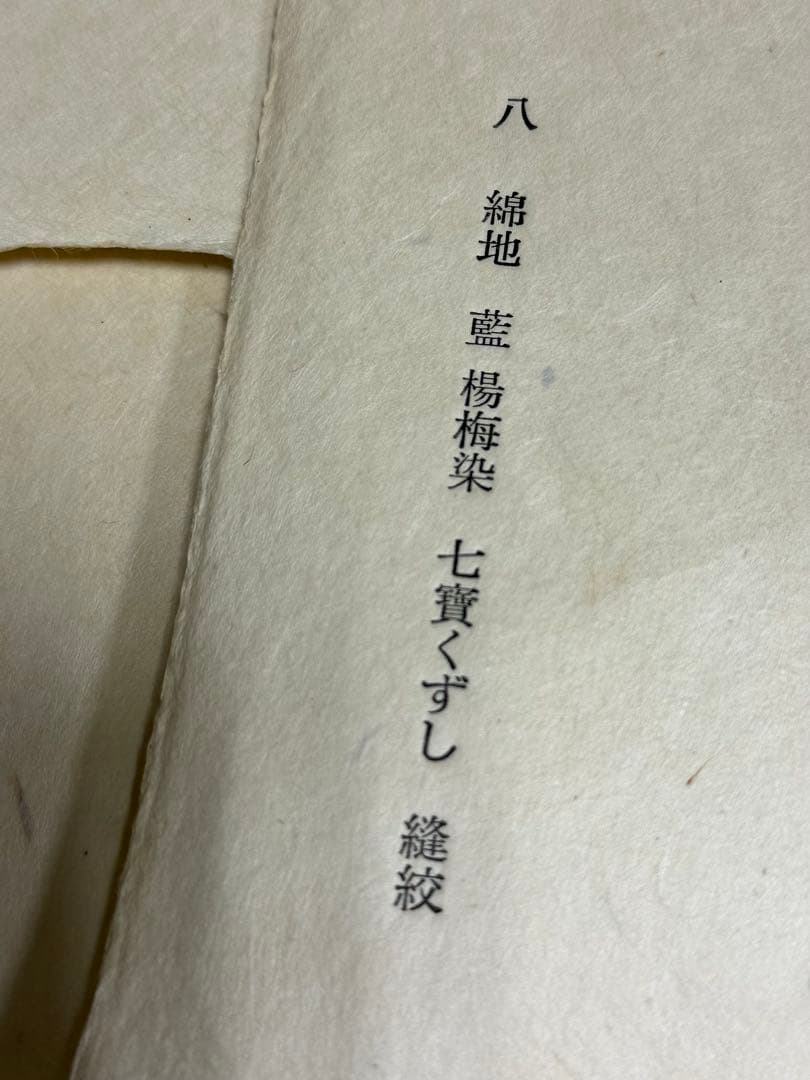 八　綿地　藍 楊梅染　七寶くずし　縫絞